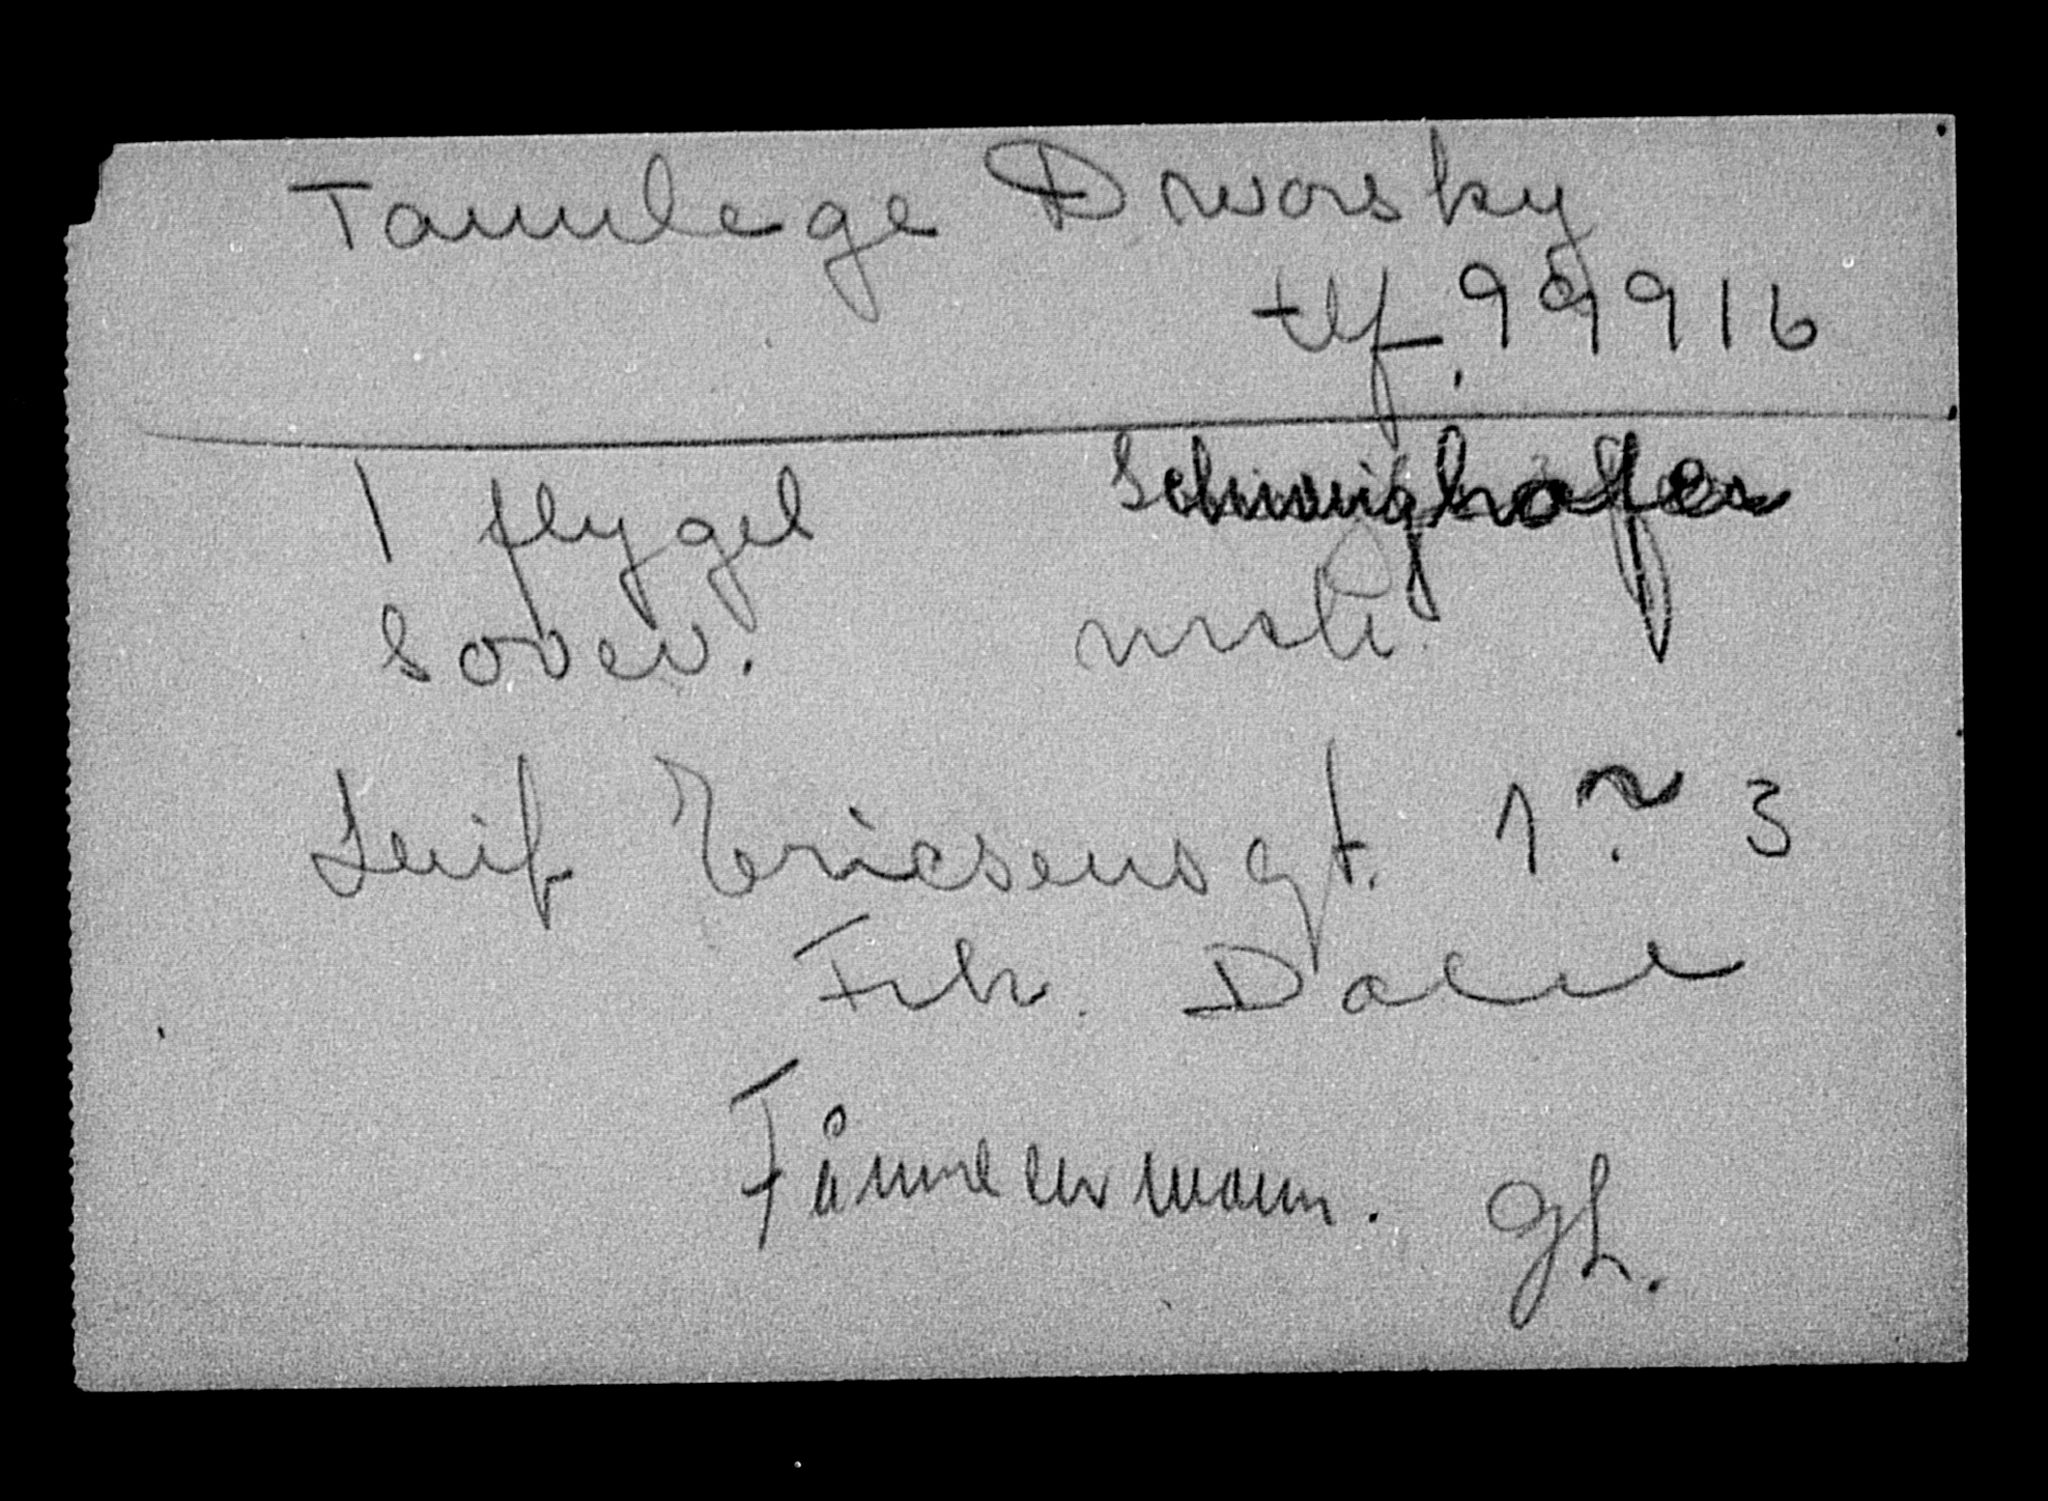 Tannlege Dworsky
tlf. 99916
1 flygel Schweighofer
Sover.
Leif Ericsensgt. 1 3
Frk. Dahl
Tømmermann. GL.